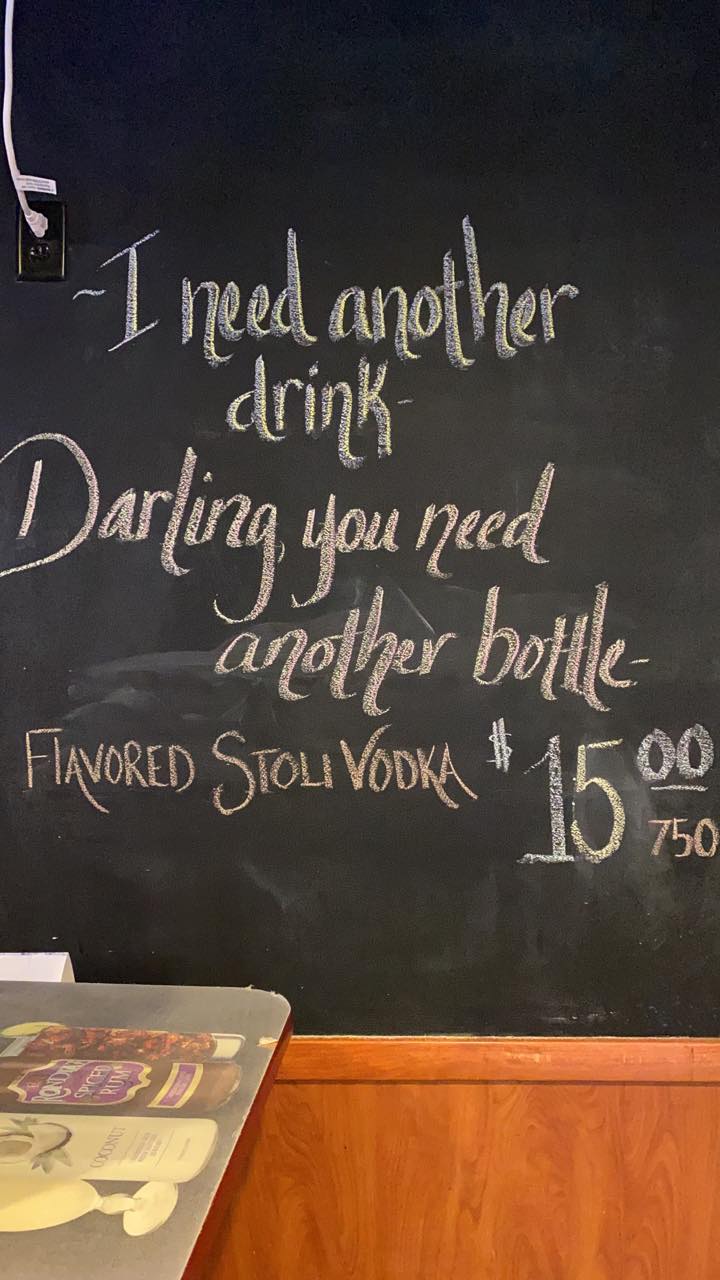 ~I need another
drink-
Darling, you need
another bottle-
FLAVORED STOLI VODKA $15 00
750
RONDIAZ
SPICED
RUM
COCONUT